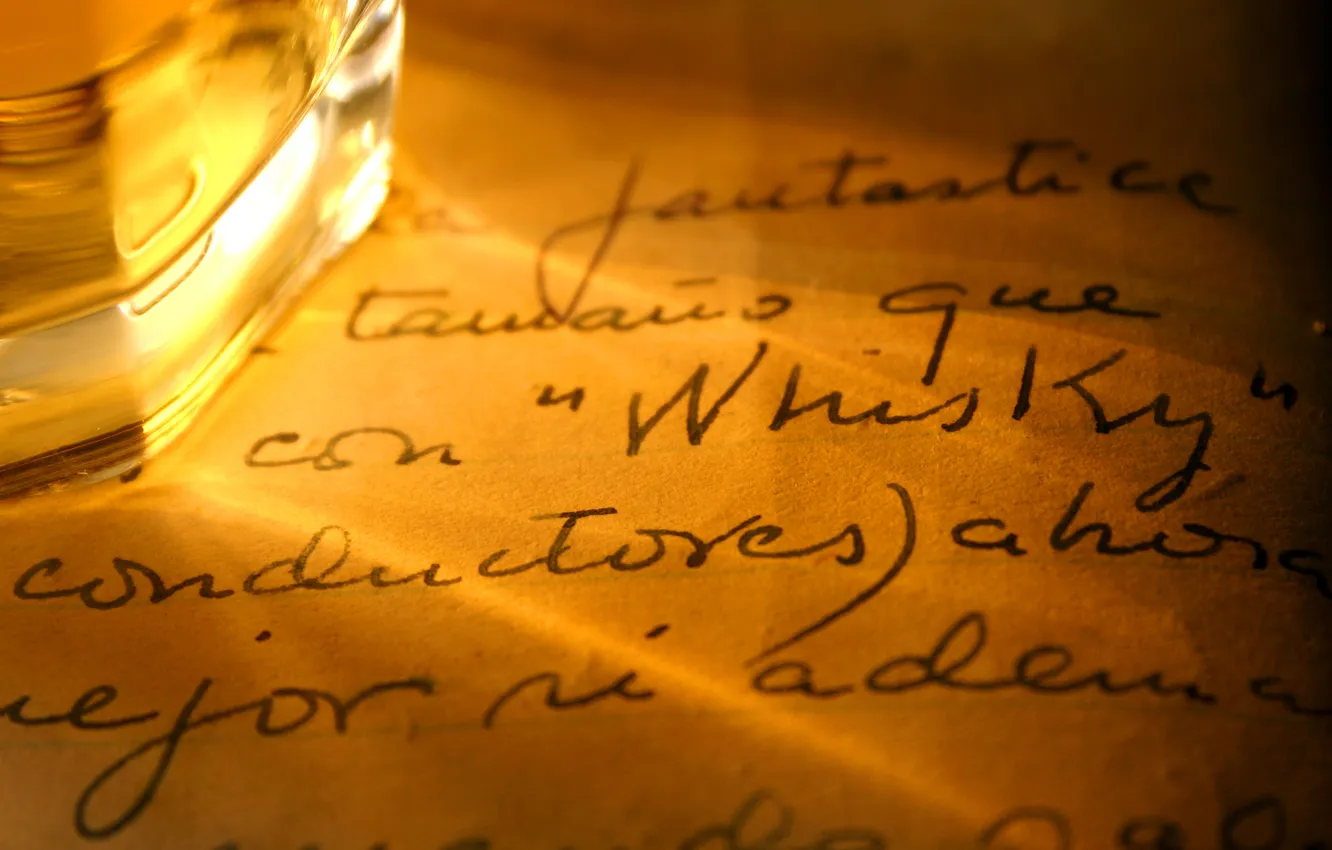 fantastice
tamaño que
con "Whisky"
conductores) ahora
mejor si adema